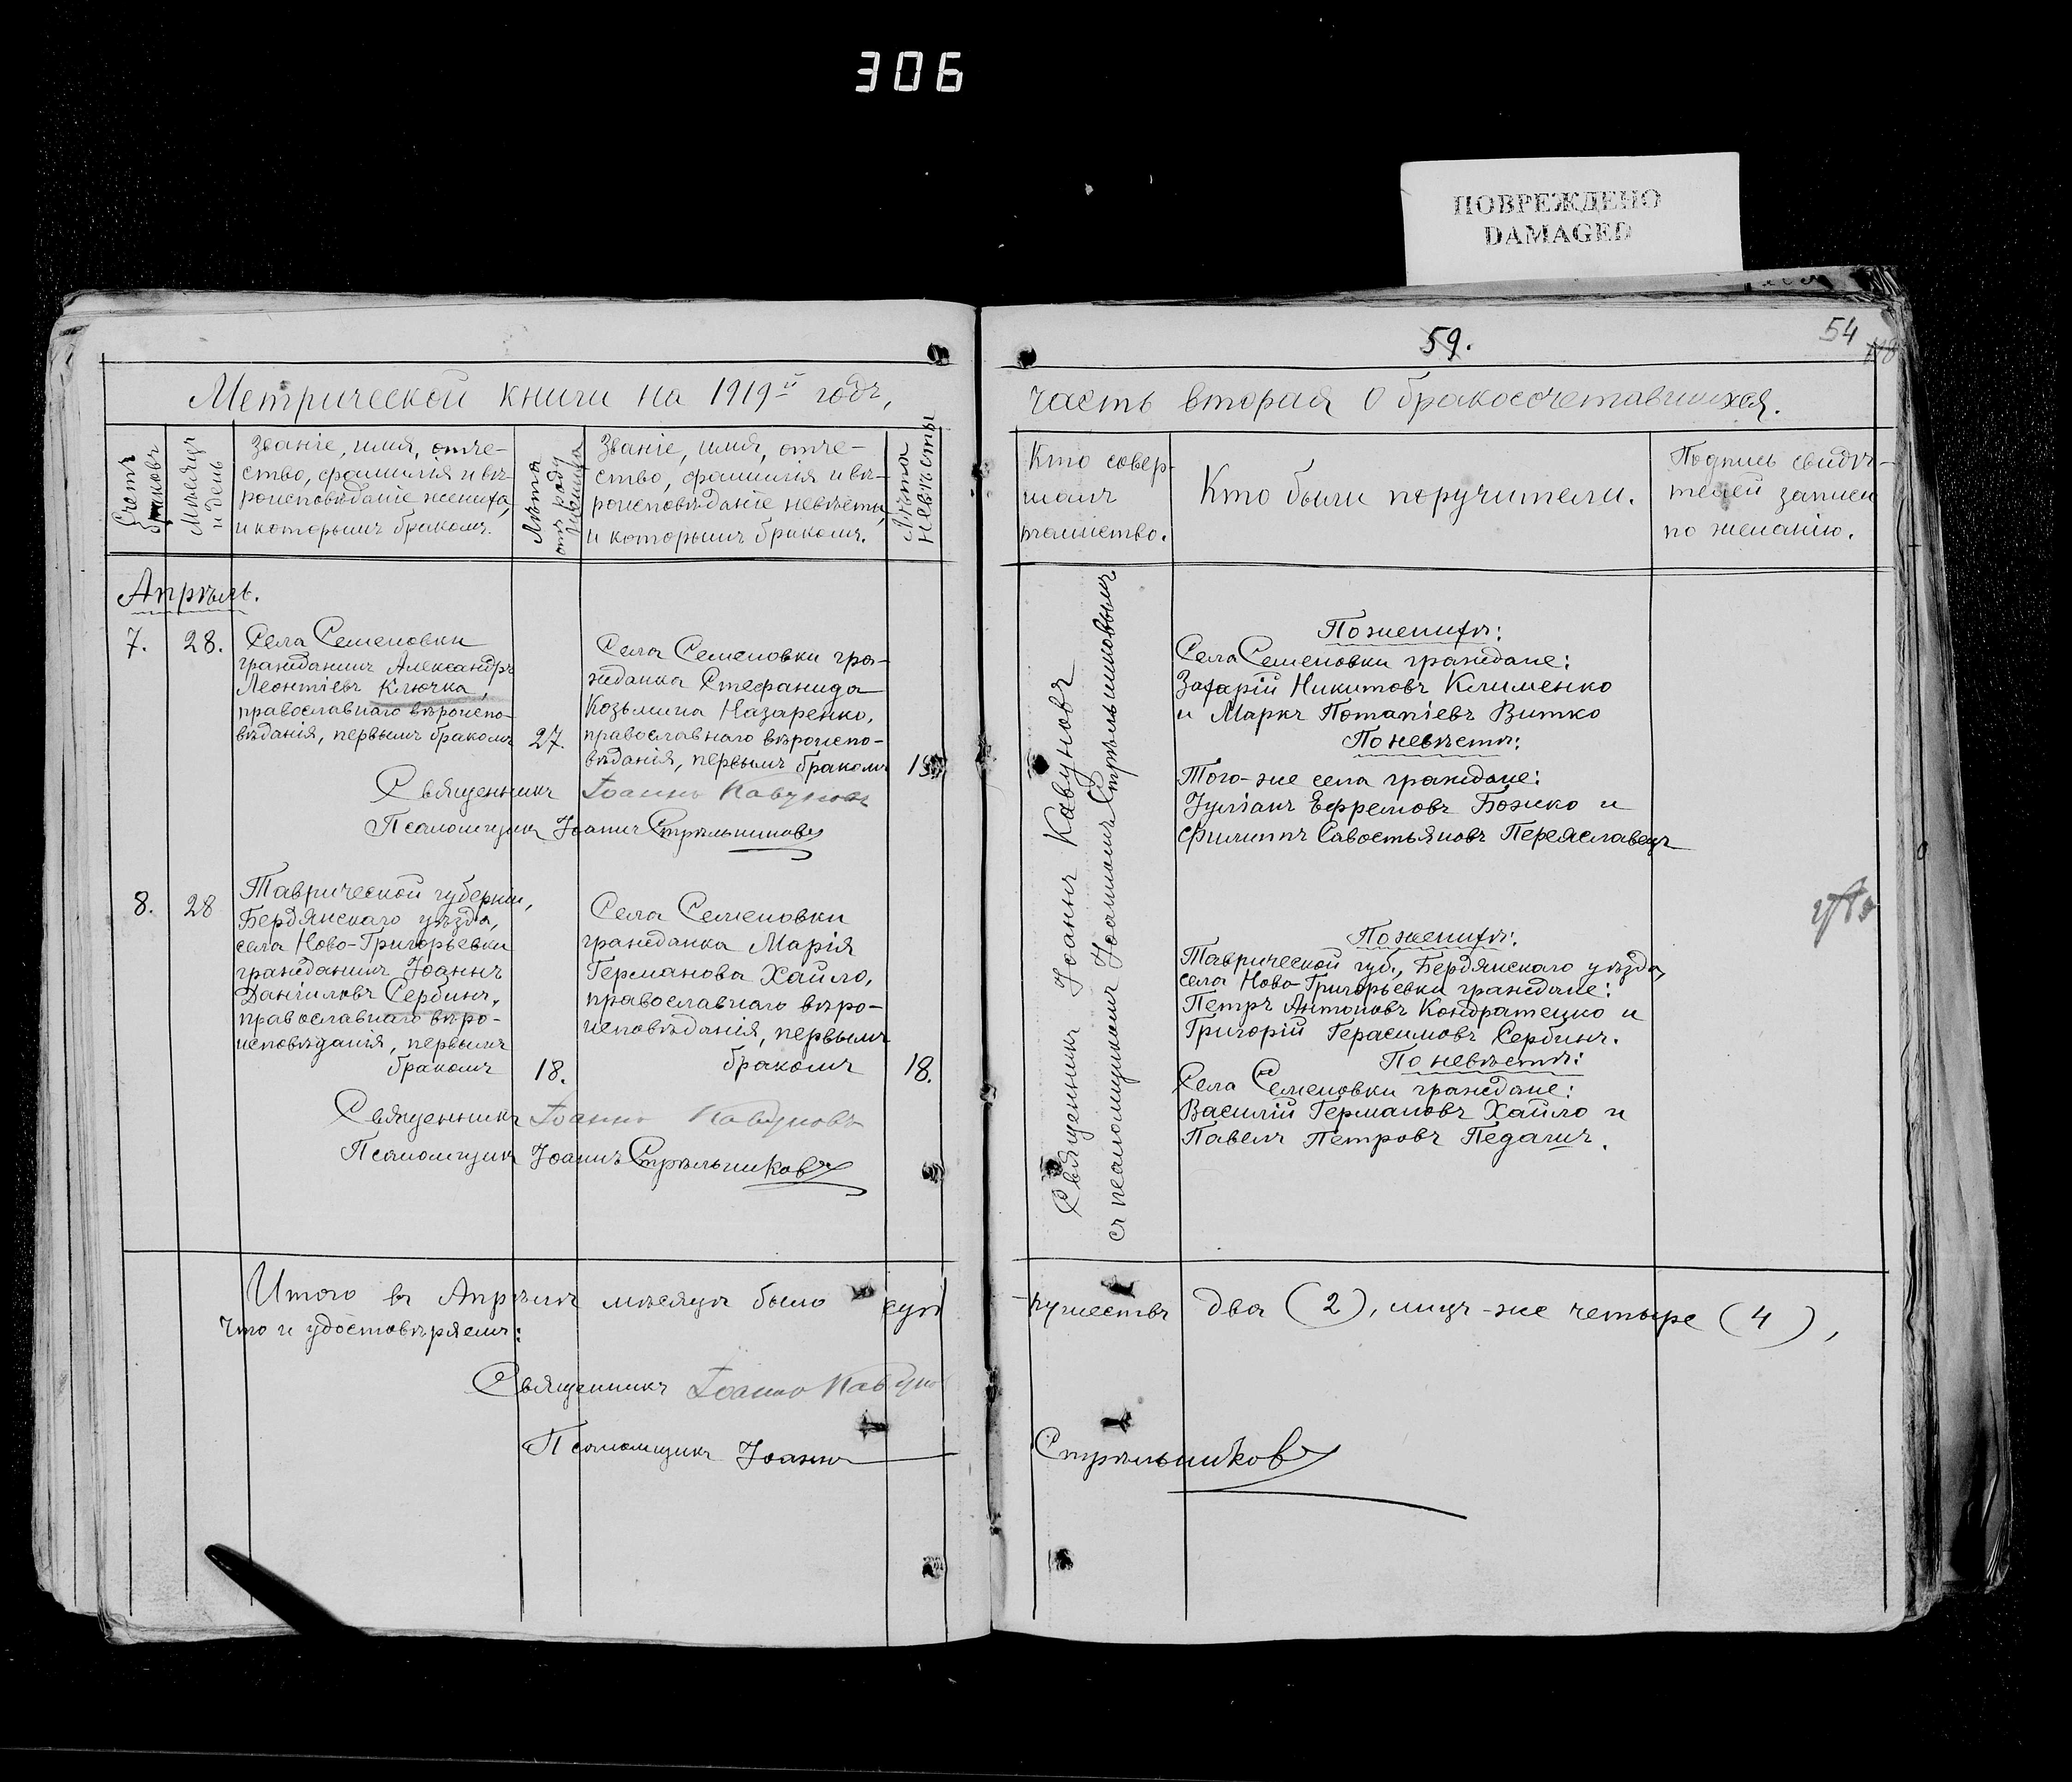 306
ПОВРЕЖДЕНО
DAMAGED
59.
54
Метрической книги на 1919й годъ,
часть вторая о бракосочетавшихся.
Счетъ браковъ
Мѣсяцъ и день
Званіе, имя, отче-
ство, фамилія и вѣ-
роисповѣданіе жениха,
и которымъ бракомъ.
Лѣта
Званіе, имя, отче-
ство, фамилія и вѣ-
роисповѣданіе невѣсты,
и которымъ бракомъ.
Лѣта невѣсты
Кто совер-
шалъ
таинство.
Кто были поручители.
Подпись свидѣ-
телей записи
по желанію.
Апрѣль.
7.
28.
Села Семеновки
гражданинъ Александръ
Леонтіевъ Ключка,
православнаго вѣроиспо-
вѣданія, первымъ бракомъ
27.
Села Семеновки гра-
жданка Стефанида
Козьмина Назаренко,
православнаго вѣроиспо-
вѣданія, первымъ бракомъ
Священникъ Іоаннъ Кавуновъ
Псаломщикъ Іоаннъ Стрѣльниковъ
8.
28
Таврической губерніи,
Бердянскаго уѣзда,
села Ново-Григорьевки
гражданинъ Іоаннъ
Даніиловъ Сербинъ,
православнаго вѣро-
исповѣданія, первымъ
бракомъ
18.
Села Семеновки
гражданка Марія
Германова Хайло,
православнаго вѣро-
исповѣданія, первымъ
бракомъ
18.
Священникъ Іоаннъ Кавуновъ
Псаломщикъ Іоаннъ Стрѣльниковъ
Священникъ Іоаннъ Кавуновъ
съ псаломщикомъ Іоанномъ Стрѣльниковымъ
По женихѣ:
Села Семеновки граждане:
Захарій Никитовъ Клименко
и Маркъ Потапіевъ Витко
По невѣстѣ:
Того-же села граждане:
Іуліанъ Ефремовъ Божко и
Филиппъ Савостьяновъ Переяславецъ
По женихѣ:
Таврической губ., Бердянскаго уѣзда,
села Ново-Григорьевки граждане:
Петръ Антоновъ Кондратецко и
Григорій Герасимовъ Сербинъ.
По невѣстѣ:
Села Семеновки граждане:
Василій Германовъ Хайло и
Павелъ Петровъ Педашъ.
Итого въ Апрѣлѣ мѣсяцѣ было супружествъ два (2), лицъ-же четыре (4),
что и удостовѣряемъ:
Священникъ Іоаннъ Кавуновъ
Псаломщикъ Іоаннъ Стрѣльниковъ